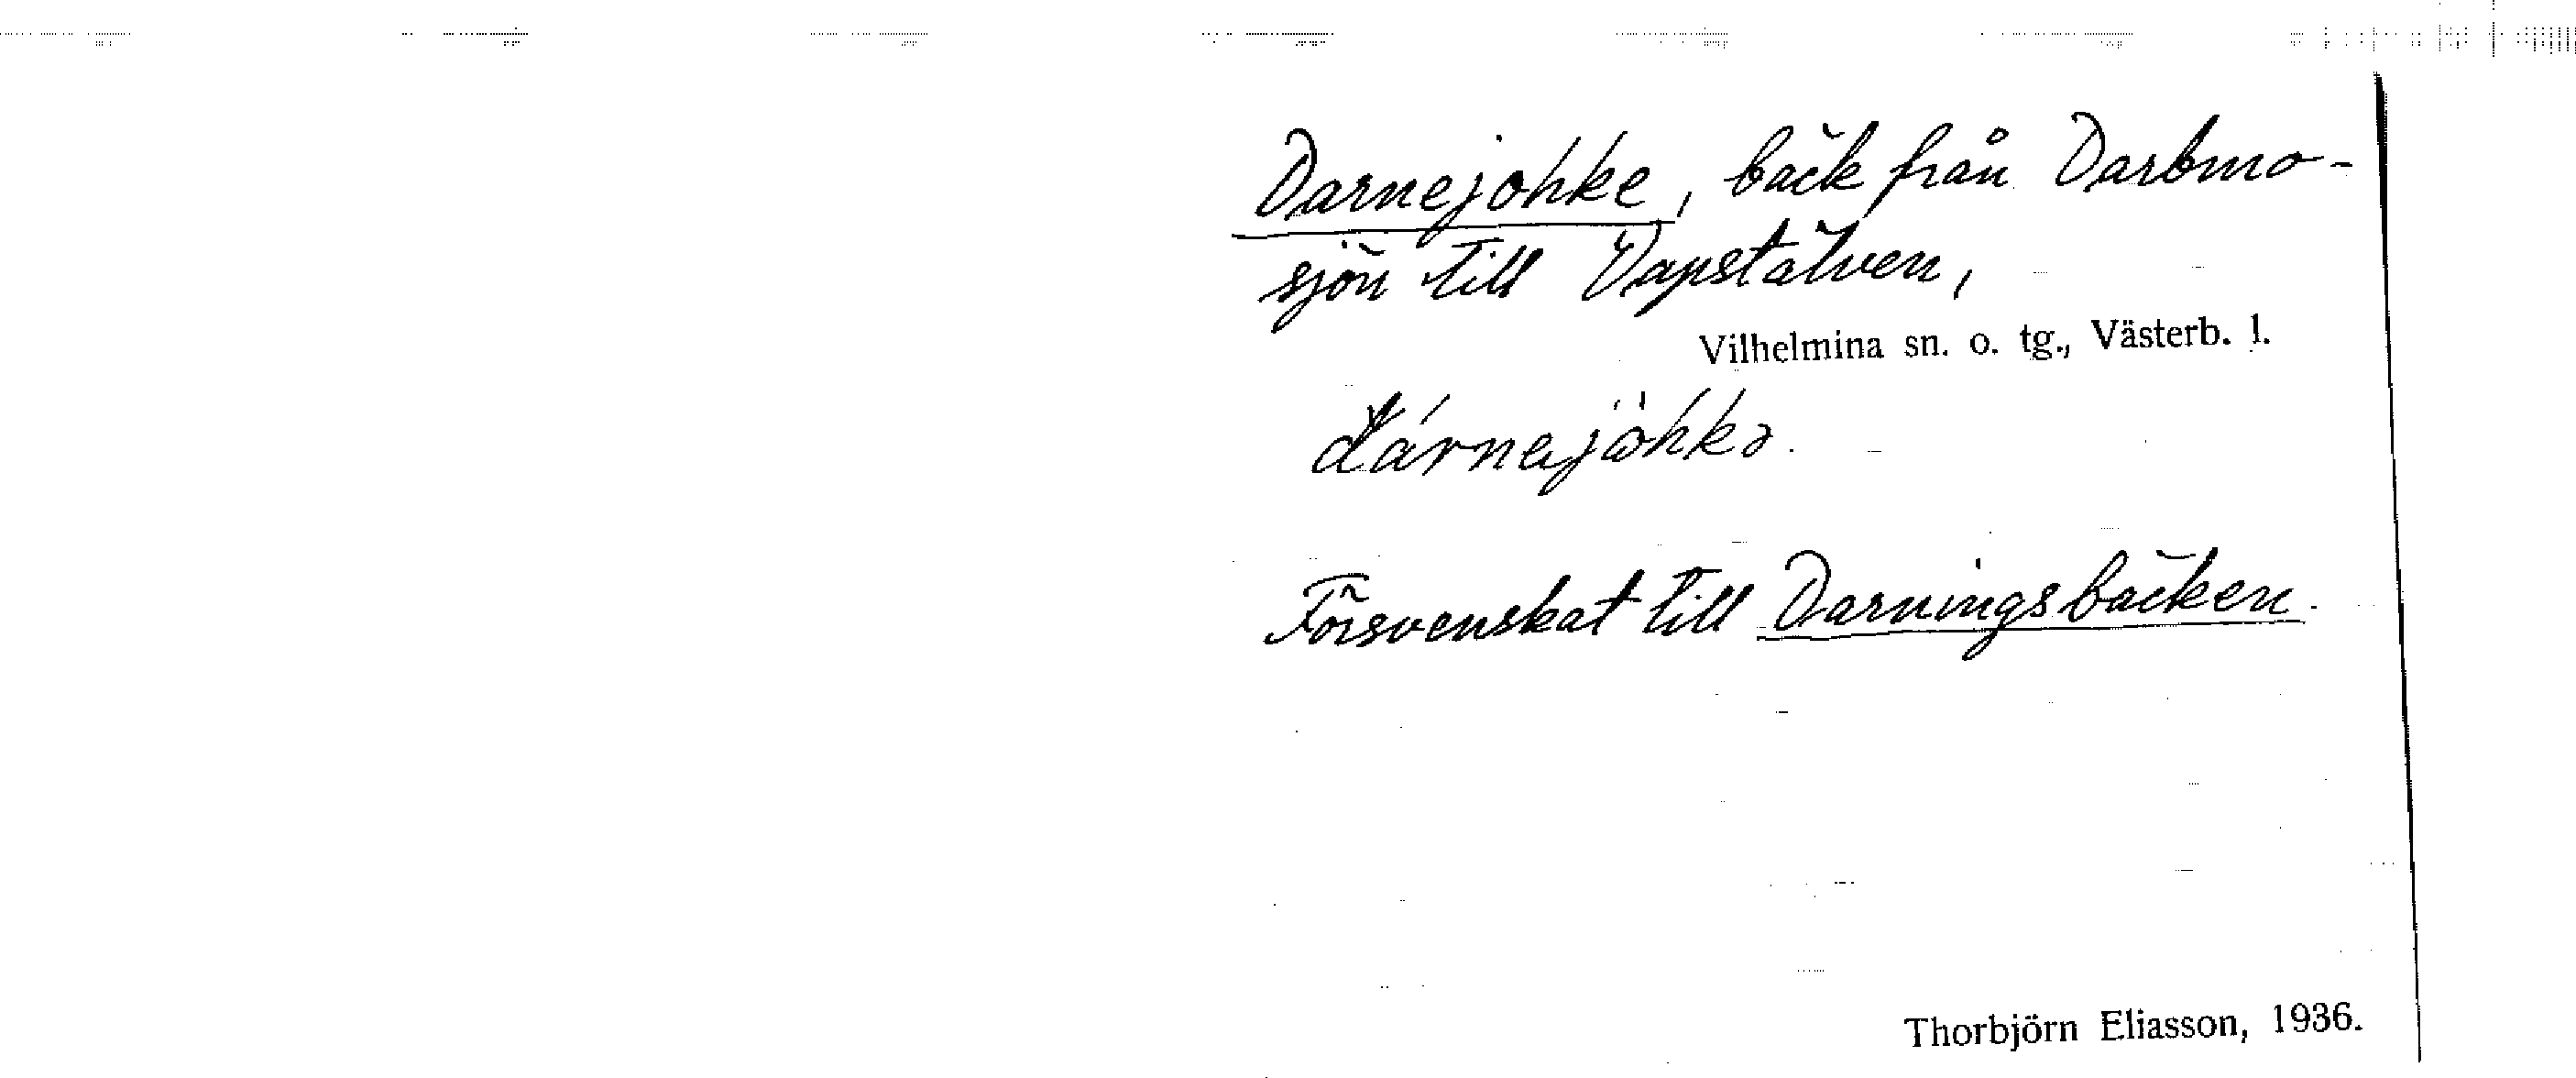 Darnejohke, bäck från Darbmo-
sjön till Vapstälven,
Vilhelmina sn. o. tg., Västerb. l.
dárnejåhkə.
Försvenskat till Darningsbäcken.
Thorbjörn Eliasson, 1936.